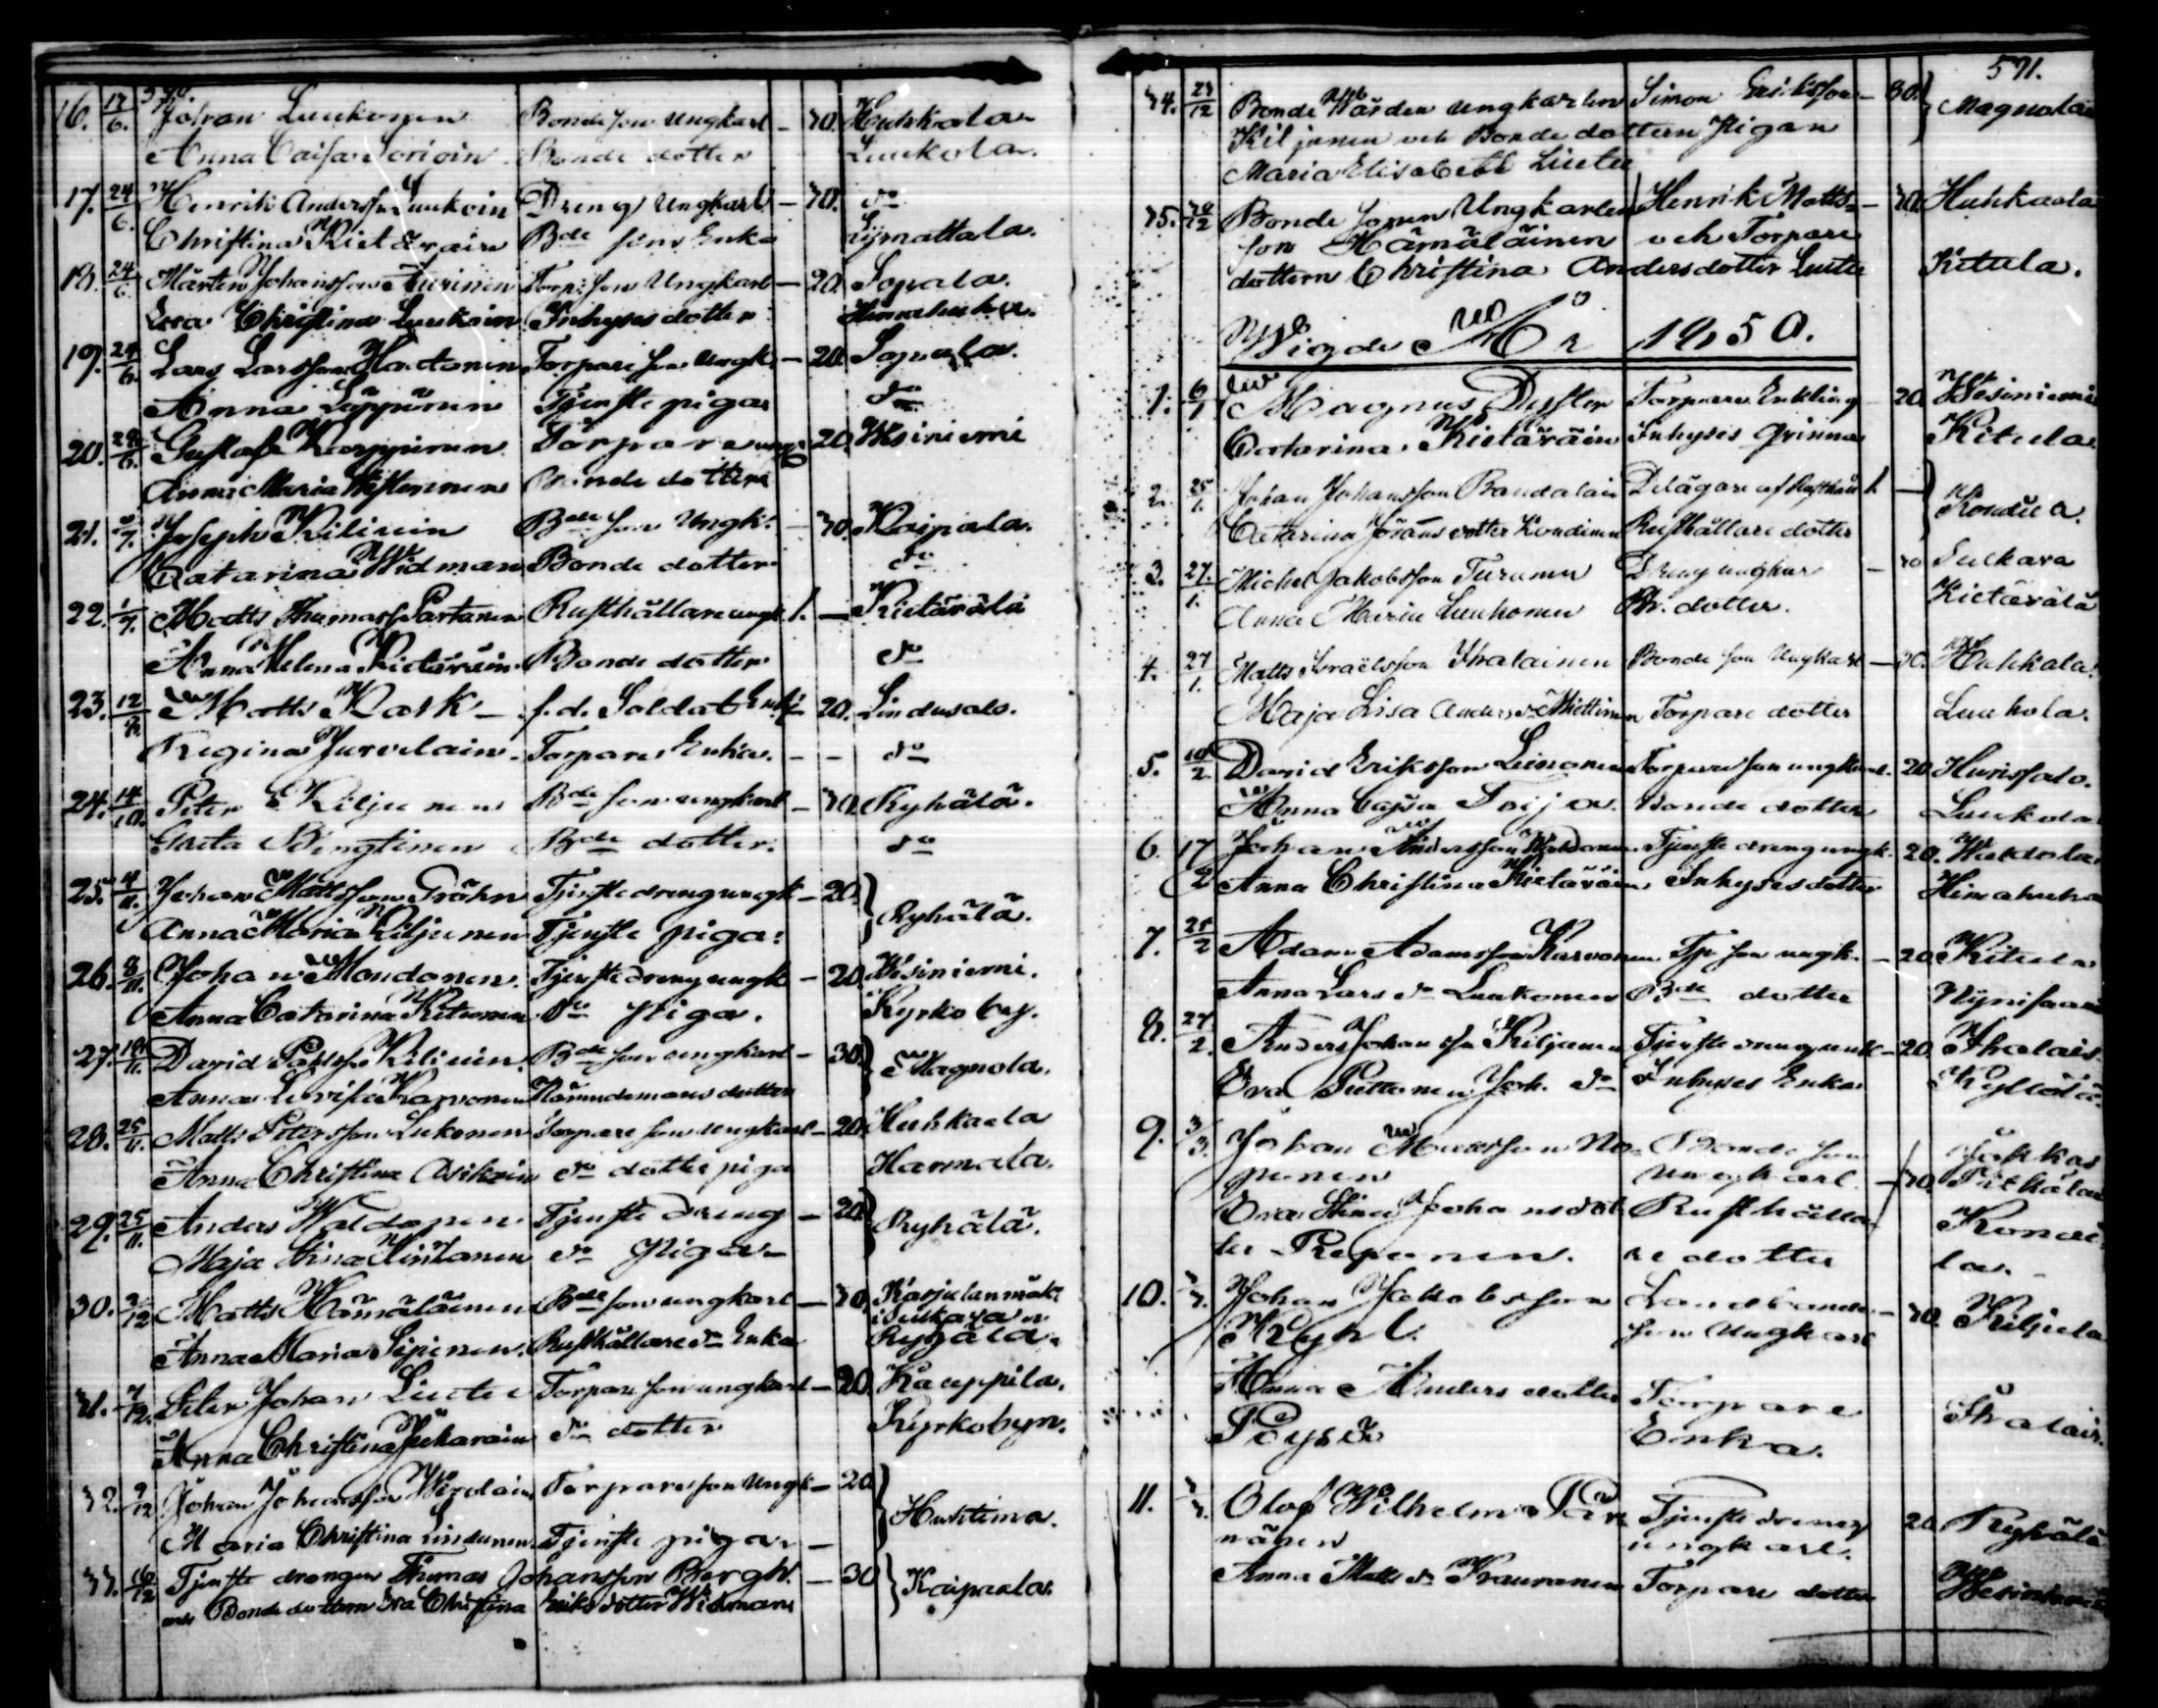 570.
16. 17/6. Johan Luukonen Bonde son Ungkarl — 30. Huhkala
Anna Caisa Sorioin Bonde dotter Luukola.
17. 24/6. Henrik Anderss. Luukoin Dreng Ungkarl — 30. do
Christina Kietäräin Bde sons Enka Lÿmattala.
18. 24/6. Mårten Johansson Auvinen Torp. son Ungkarl — 20. Sopala.
Eva Christina Luukoin Inhyses dotter Himahuha.
19. 24/6. Lars Larsson Hartonen Torpare son Ungk. — 20. Sopala.
Anna Lappinen Tjenste piga do
20. 29/6. Gustaf Karppinen Torpare ungk. 20. Wesiniemi
Anna Maria Bonde dottern
21. /7. Joseph Kiliuin Bde son Ungk. — 30. Kaipala.
Catarina Widman Bonde dotter do
22. 1/7. Matts Thomass. Partanen Rusthållare ungk. 1. — Kietärälä
Anna Helena Kietäräin Bonde dotter do
23. 12/8. Matts Rask — f.d. Soldat Enkl. — 20. Lindusalo.
Regina Jurvelain. Torpare Enka. — — do
24. 14/10. Peter Kiljunen Bde son ungkarl — 30. Ryhälä.
Greta Bengtinen Bde dotter. do
25. 4/11. Johan Mattsson Gröhn Tjenste dreng ungk — 20. } Ryhälä.
Anna Maria Kiljunen Tjenste piga:
26. 8/11. Johan Mondonen. Tjenste dreng ungk — 20. Wesiniemi.
Anna Catarina Ketonen do Piga. Kyrko by.
27. 18/11. David Pålss. Kiliuin. Bde son ungkarl — 30. } Magnola.
Anna Lovisa Karvonen Nämndemans dotter
28. 25/11. Matts Petersson Lukonen Torpare son Ungkarl — 20. Huhkala
Anna Christina Asikain do dotter piga Harmala.
29. 25/11. Anders Waldonen Tjenste Dreng — 20. } Ryhälä.
Maja Stina do Piga —
30. /12 Matts Hämäläinen Bde son ungkarl — 30.
Anna Maria Sipinen. Rusthållare sn Enka Ryhälä.
31. /12. Peter Johan Liutu Torpare son ungkarl — 20. Kauppila.
Anna Christina do dotter Kyrkobyn.
32. 9/12 Johan Johansson Wirolain Torpare son Ungk — 20 } Huhtima.
Maria Christina Lindunen Tjenste piga —
33. 16/12 Tjenste drengen Thomas Johansson Bergh. — 30 } Kaipaala.
och Bonde dottern Eva Christina Eriks dotter Widman
571.
34. 23/12 Bonde Wärden Ungkarlen Simon Eriksson — 30. } Magnola
Kiljunen och Bonde dottern Pigan
Maria Elisabeth Liutu
35. 30/12 Bonde sonen Ungkarlen Henrik Matts- — 30. Huhkaala
son Hämäläinen och Torpare
dottern Christina Andersdotter Liutu Kitula.
Wigde År 1850.
1. 6/1 Magnus Dyster Torpare Enkling 20. Wesiniemi
Catarina Kietäräin Inhyses qvinna Kitula.
2. 25/1. Johan Johansson Pandalain Delägare af Rusthåll 1. — } Kondiia.
Catarina Johans dotter Kondinen Rusthållare dotter
3. 27/1. Michel Jakobsson Turunen Dreng ungkar — 30 Suikara
Anna Maria Luukonen Bde. dotter. Kietärälä
4. 27/1. Matts Israelsson Ihalainen Bonde son Ungkarl — 30. Huhkala.
Maja Lisa Anders dr Miettinen Torpare dotter Luukola.
5. 10/2 David Eriksson Luinonen Torpare son ungkarl. 20 Hurissalo.
Anna Cajsa Soijo. Bonde dotter Luukola
6. 17/2 Johan Andersson Waldonen. Tjenste dreng ungk. 20. Waldola
Anna Christina Kietäräin Inhyses dotter Himahuha
7. 25/2 Adam Adamsson Karvonen Tje son ungk. — 20. Kitula
Anna Lars dr Luukonen Bde dotter Nÿnisaari
8. 27/2. Anders Johansson Kiljunen Tjenste dreng unk — 20. Ihalais.
Eva Puttonen Joh. dr Inhyses Enka Kylälä.
9. 3/3. Johan Matsson No- Bonde son
ponen Ungkarl. — 30. Pitkälax
Eva Stina Johansdot- Rusthålla Kondii
ter Reponen. re dotter la.
10. /3. Johan Jakobsson Landbonde — 30. Kiljula
Kÿhl. son Ungkarl
Anna Anders dotter Torpare Ihalais.
Pöysä Enka.
11. /3. Olof Wilhelm Pär- Tjenste dreng 20 Ryhälä
nänen ungkarl.
Anna Matts dr Kauranen Torpare dotter Wesiniemi